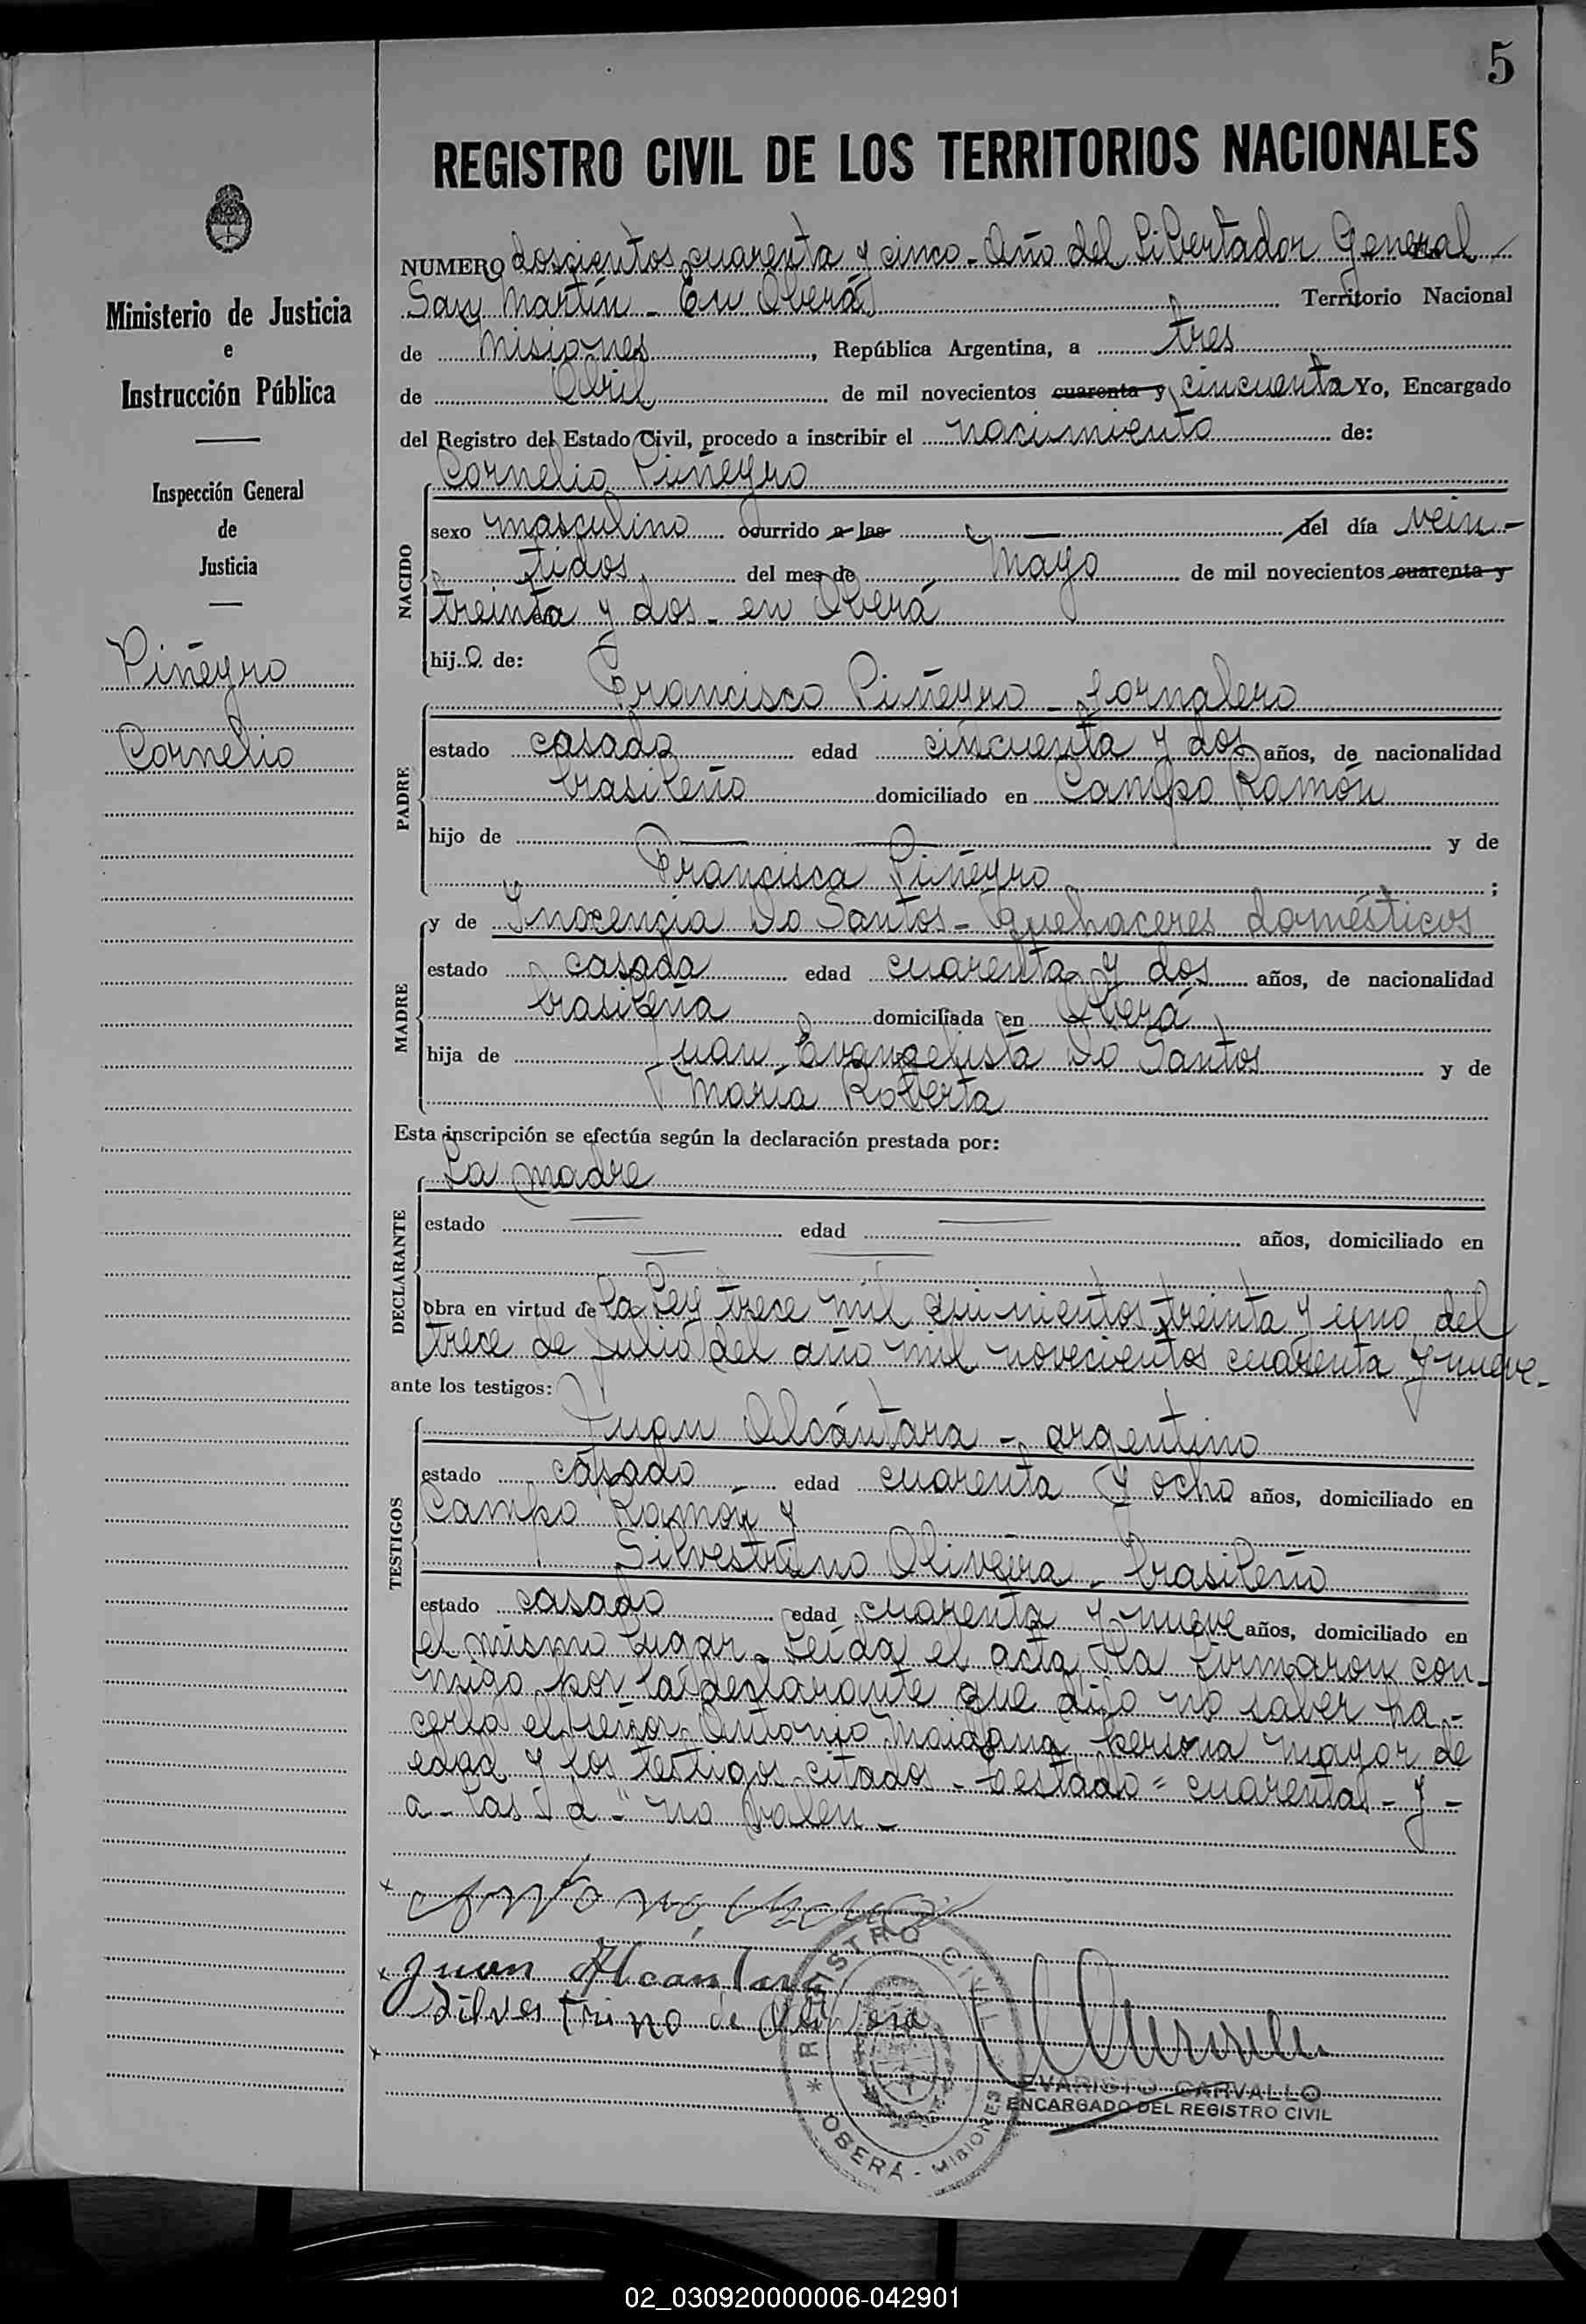 5
REGISTRO CIVIL DE LOS TERRITORIOS NACIONALES
Ministerio de Justicia
e
Instrucción Pública
Inspección General
de
Justicia
Piñeyro
Cornelio
NUMERO doscientos cuarenta y cinco - Año del Libertador General -
San Martín - En Oberá Territorio Nacional
de Misiones, República Argentina, a tres
de Abril de mil novecientos cuarenta y cincuenta Yo, Encargado
del Registro del Estado Civil, procedo a inscribir el nacimiento de:
NACIDO
Cornelio Piñeyro
sexo masculino ocurrido a las — del día vein-
tidos del mes de Mayo de mil novecientos cuarenta y
treinta y dos - en Oberá
hijo de:
PADRE
Francisco Piñeyro - Jornalero
estado casado edad cincuenta y dos años, de nacionalidad
brasileño domiciliado en Campo Ramón
hijo de — — y de
Francisca Piñeyro ;
MADRE
y de Inocencia Do Santos - Quehaceres domésticos
estado casada edad cuarenta y dos años, de nacionalidad
brasileña domiciliada en Oberá
hija de Juan Evangelista Do Santos y de
María Roberta
Esta inscripción se efectúa según la declaración prestada por:
DECLARANTE
La madre
estado — edad — años, domiciliado en
— —
obra en virtud de la Ley trece mil quinientos treinta y uno del
trece de Julio del año mil novecientos cuarenta y nueve -
ante los testigos:
TESTIGOS
Juan Alcántara - argentino
estado casado edad cuarenta y ocho años, domiciliado en
Campo Ramón y
Silvestrino Oliveira - brasileño
estado casado edad cuarenta y nueve años, domiciliado en
el mismo lugar - Leída el acta, la firmaron con-
migo por la declarante que dijo no saber ha-
cerlo el señor Antonio Maidana persona mayor de
edad y los testigos citados - Testado = cuarenta - y -
a - las - d - " no valen -
Antonio
Juan Alcantara
Silvestrino de Oliveira
REGISTRO CIVIL
* OBERÁ - MISIONES
EVARISTO CARVALLO
ENCARGADO DEL REGISTRO CIVIL
02_030920000006-042901